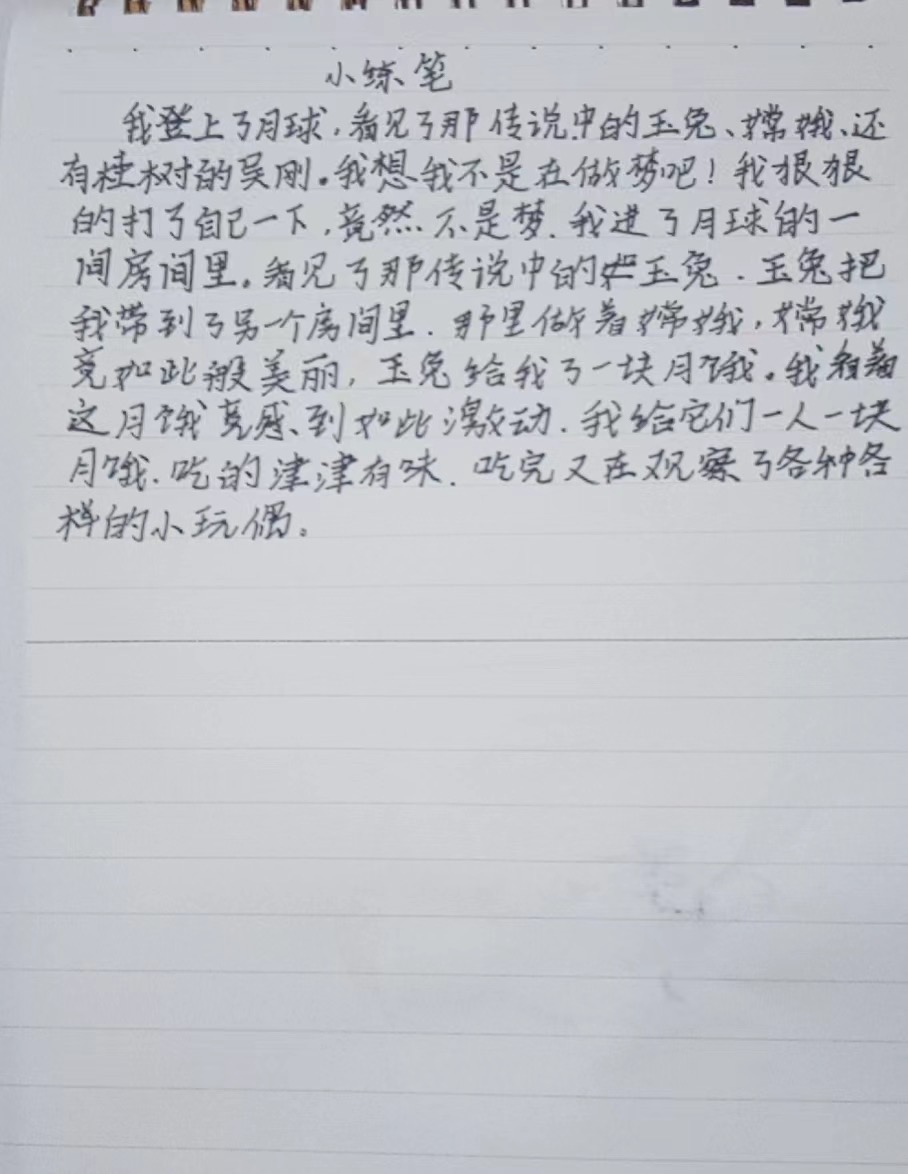 小练笔
我登上了月球,看见了那传说中的玉兔、嫦娥、还
有桂树的吴刚。我想我不是在做梦吧!我狠狠
的打了自己一下,竟然不是梦.我进了月球的一
间房间里。看见了那传说中的玉兔.玉兔把
我带到了另一个房间里.那里做着嫦娥,嫦娥
竟如此般美丽,玉兔给我了一块月饿。我看着
这月饿竟感到如此激动.我给它们一人一块
月饿.吃的津津有味.吃完又在观察了各种各
样的小玩偶。